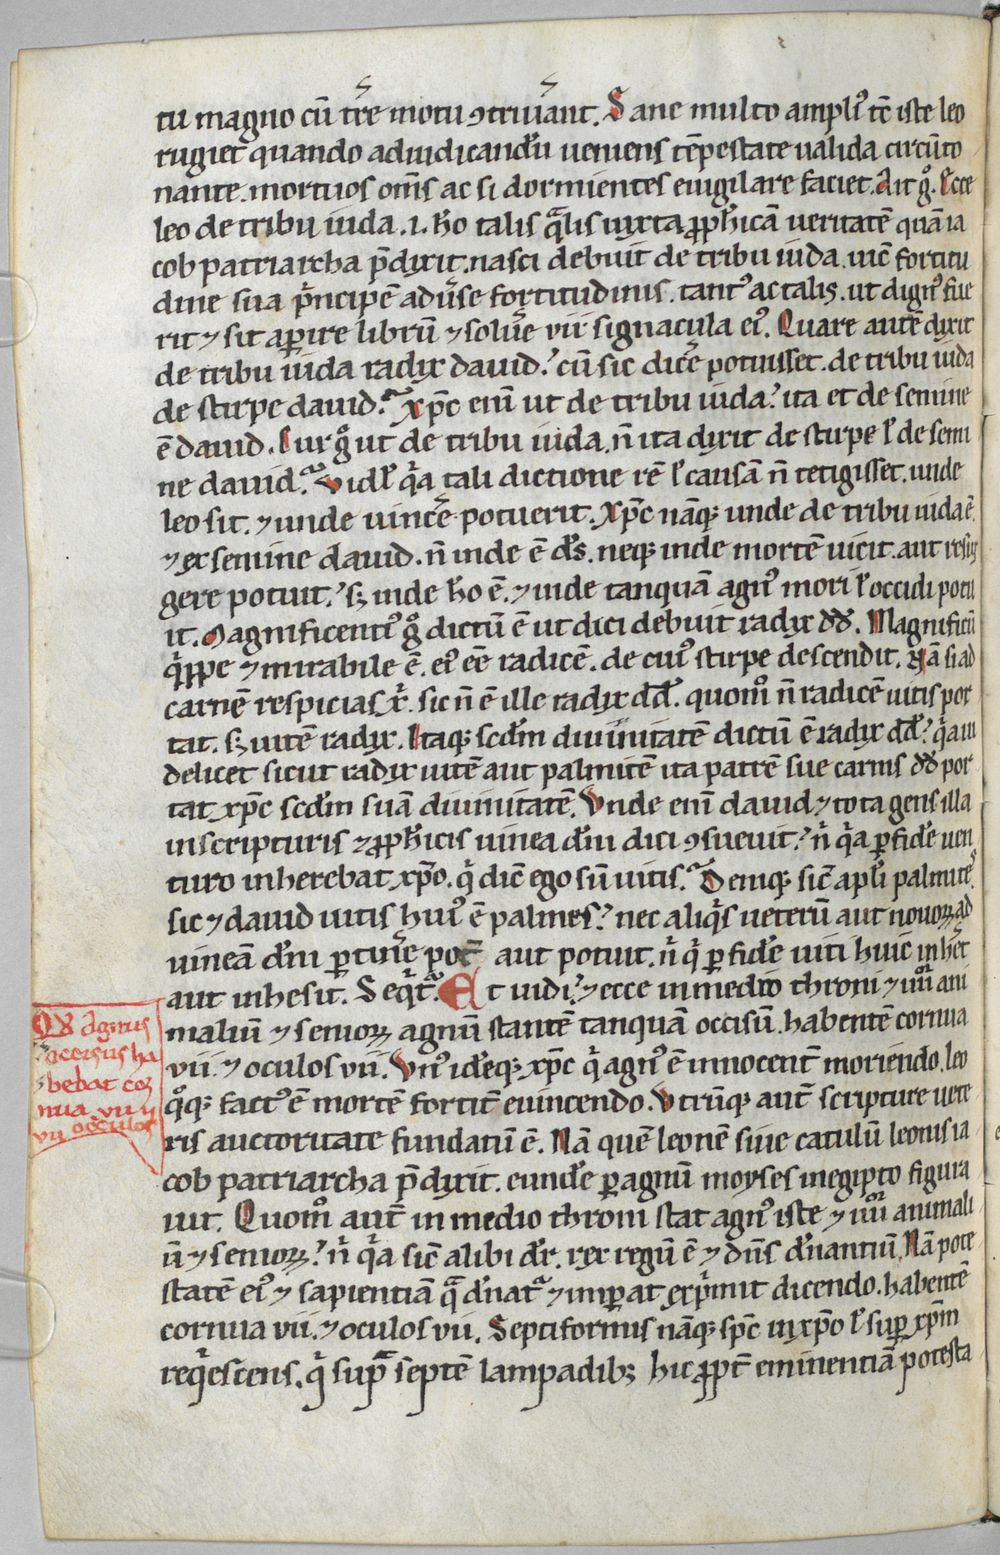 tu magno cũ tr̃e motu ꝯtriu̾ant. Sane multo ampliꝰ tc̃ iste leo
rugiet quando adiudicandũ ueniens tẽpestate ualida circũto
nante. mortuos om̃s ac si dormientes euigilare faciet. Ait gͦ. Ecce
leo de tribu iuda .i. hõ talis q̃lis iuxta ꝓph̃icã ueritatẽ quã ia
cob patriarcha p̃dixit. nasci debuit de tribu iuda. uic̃ fortitu
dine sua pͥncipẽ adu̾se fortitudinis. tantꝰ ac talis. ut dignꝰ fue
rit ⁊ sit aꝑire librũ ⁊ solu̾e uii signacula eiꝰ. Quare autẽ dixit
de tribu iuda radix dauid? cũ sic dic̾e potuisset. de tribu iuda
de stirpe dauid. xp̃c enĩ ut de tribu iuda? ita et de semine
ẽ dauid. Cur gͦ ut de tribu iuda. ñ ita dixit de stirpe ł de semi
ne dauid. Vidł qͥa tali dictione rẽ ł causã ñ tetigisset. unde
leo sit. ⁊ unde uinc̾e potuerit. Xp̃c nãqꝫ unde de tribu iuda ẽ
⁊ ex semine dauid. ñ inde ẽ d̃s. neqꝫ inde mortẽ uicit. aut resur
gere potuit? sꝫ inde hõ ẽ. ⁊ inde tanquã agnꝰ mori ł occidi potu
it. Magnificentiꝰ gͦ dictũ ẽ ut dici debuit radix dd̃. Magnificũ
qͥppe ⁊ mirabile ẽ. eiꝰ eẽ radicẽ. de cuiꝰ stirpe descendit. Nã si ad
carnẽ respicias xͥ. sic ñ ẽ ille radix dd̃. quomͦ ñ radicẽ uitis por
tat. sꝫ uitẽ radix. Itaqꝫ scd̃m diuinitatẽ dictũ ẽ radix dd̃? qͥa ui
delicet sicut radix uitẽ aut palmitẽ ita patrẽ sue carnis dd̃ por
tat xp̃c scd̃m suã diuinitatẽ. Vnde enĩ dauid ⁊ tota gens illa
in scripturis ⁊ ꝓph̃icis uinea dñi dici ꝯsueuit? ñ qͥa ꝑ fidẽ uen
turo inherebat xp̃o. qͥ dic̃ ego sũ uitis. Deniqꝫ sic̃ apłi palmitẽ
sic ⁊ dauid uitis huiꝰ ẽ palmes? nec aliqͥs ueterũ aut nouoꝝ ad
uineã dñi ꝑtin̾e pot̃ aut potuit. ñ qͥ ꝑ fidẽ uiti huic inher̃
aut inhesit. Seqͥt᷑. Et uidi? ⁊ ecce in medio throni ⁊ iiiiͦꝝ ani
maliũ ⁊ senioꝝ agnũ stantẽ tanquã occisũ. habentẽ cornua
vii. ⁊ oculos vii. Vnꝰ idẽqꝫ xp̃c qͥ agnꝰ ẽ innocent̃ moriendo. leo
qͦqꝫ factꝰ ẽ mortẽ fortit̃ euincendo. Vtrũqꝫ aut̃ scripture uete
ris auctoritate fundatũ ẽ. Nã quẽ leonẽ siue catulũ leonis ia
cob patriarcha p̃dixit. eundẽ ꝑ agnũ moyses in egipto figura
uit. Quomͦ aut̃ in medio throni stat agnꝰ iste ⁊ iiiiͦꝝ animali
ũ ⁊ senioꝝ? ñ qͥa sic̃ alibi dr̃. rex regũ ẽ ⁊ dñs dñantiũ. Nã pote
statẽ eiꝰ ⁊ sapientiã q̃ dñat᷑ ⁊ imꝑat exp̾mit dicendo. habentẽ
cornua vii. ⁊ oculos vii. Septiformis nãqꝫ sp̃c in xp̃o ł suꝑ xp̃m
reqͥescens. qͥ supᷓ septẽ lampadibꝫ hic ꝓpt̃ eminentiã potesta
Qd̃ agnus
occisus ha
bebat cor
nua vii ⁊
vii occulos